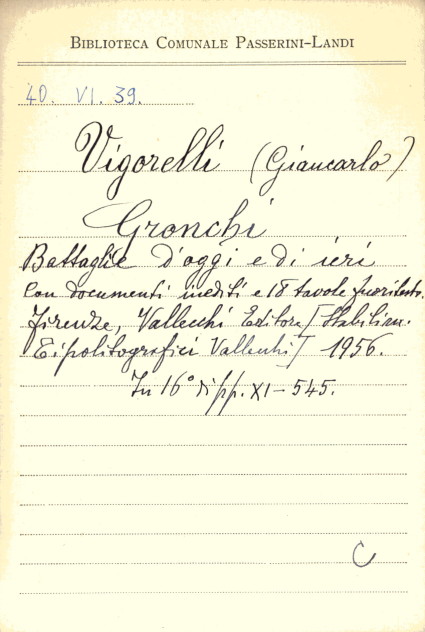 BIBLIOTECA COMUNALE PASSERINI-LANDI
40. VI. 39.
Vigorelli (Giancarlo)
Gronchi
Battaglie d'oggi e di ieri
Con documenti inediti e 18 tavole fuori testo.
Firenze, Vallecchi Editore [Stabilim.
Tipolitografici Vallecchi] 1956.
In 16° di pp. XI-545.
C